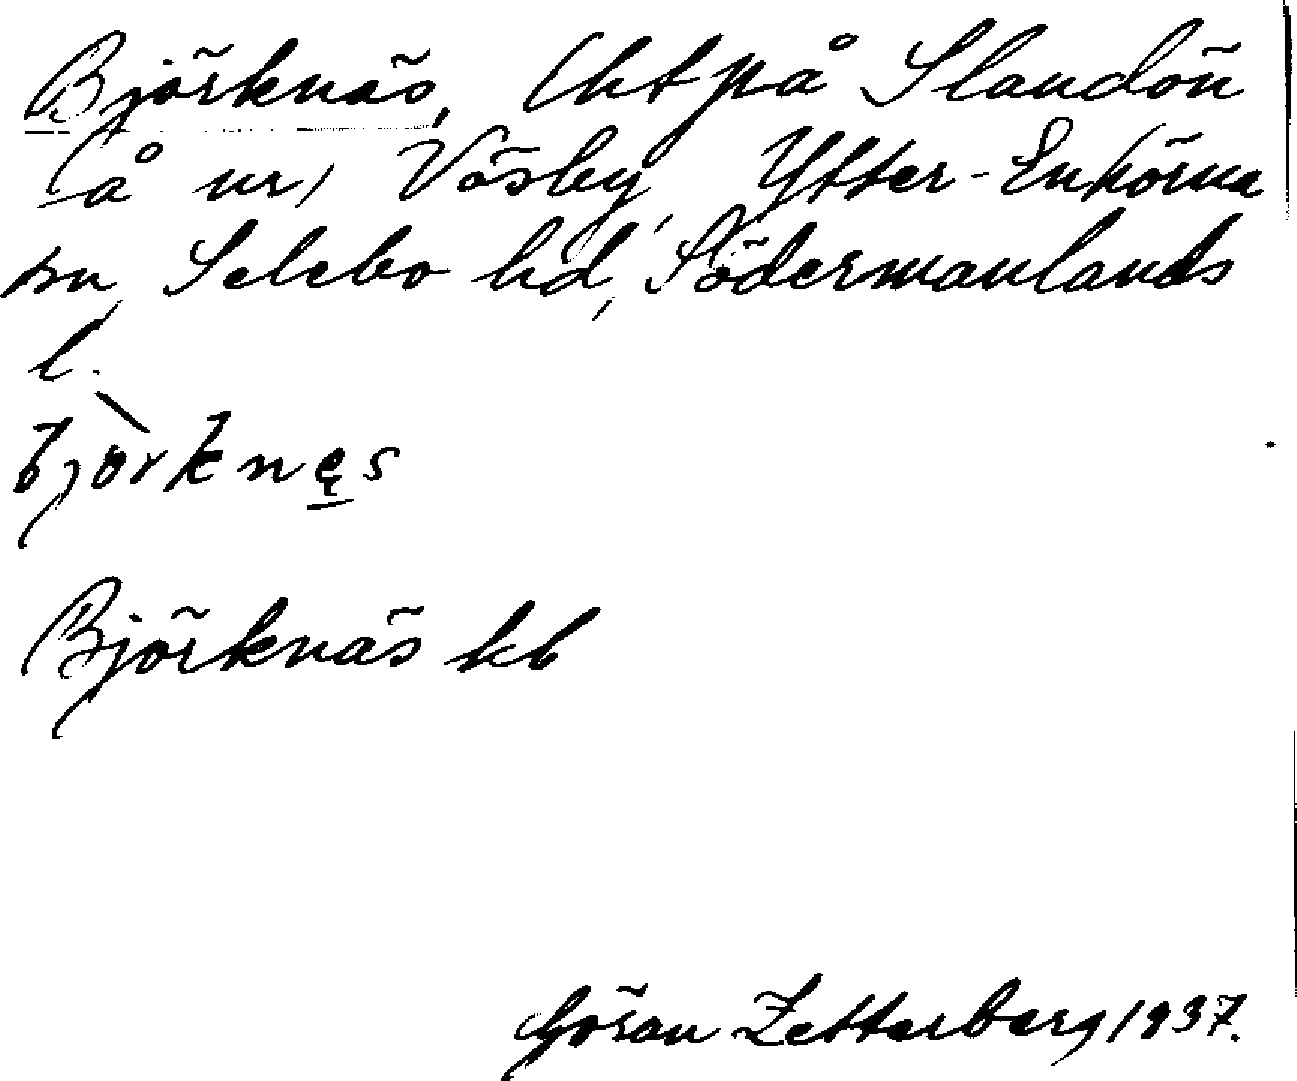 Björknäs, (ht på Slandön
(å nr) Väsby, Ytter-Enhörna
sn, Selebo hd, Södermanlands
l.
bjòrknęs
Björknäs kb
Göran Zetterberg 1937.